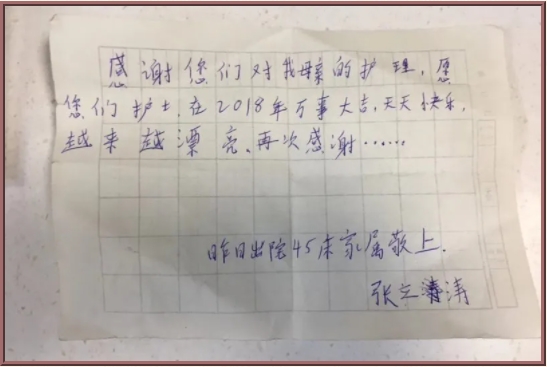 感谢您们对我母亲的护理，愿
您们护士，在2018年万事大吉，天天快乐，
越来越漂亮、再次感谢……
昨日出院45床家属敬上.
张立涛